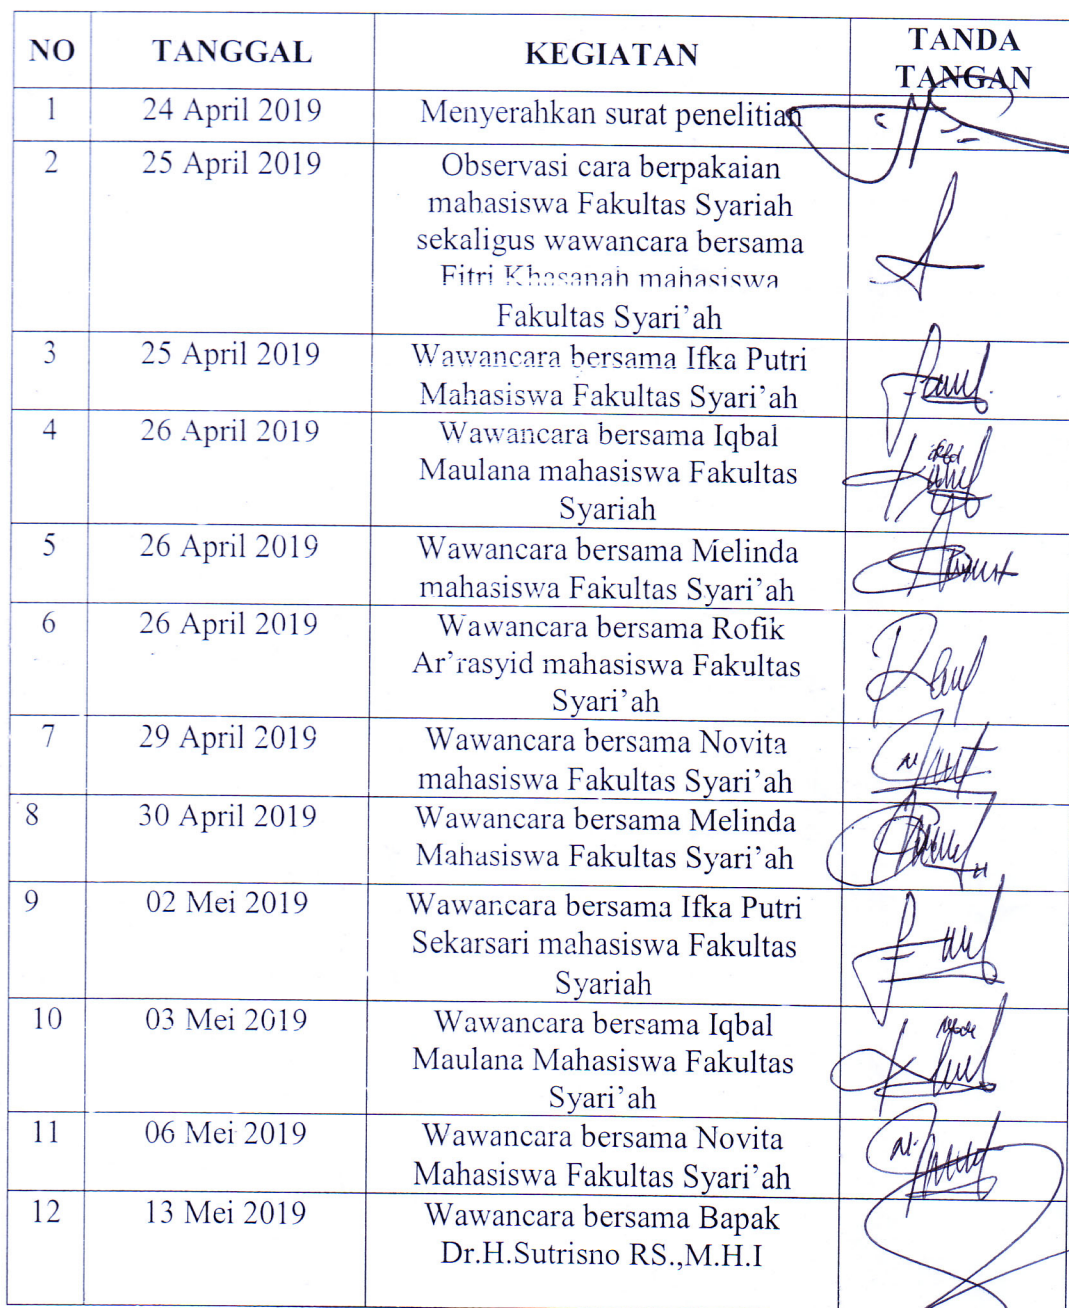 NO TANGGAL KEGIATAN TANDA
TANGAN
1 24 April 2019 Menyerahkan surat penelitian
2 25 April 2019 Observasi cara berpakaian
mahasiswa Fakultas Syariah
sekaligus wawancara bersama
Fitri Khasanah mahasiswa
Fakultas Syari'ah
3 25 April 2019 Wawancara bersama Ifka Putri
Mahasiswa Fakultas Syari'ah
4 26 April 2019 Wawancara bersama Iqbal
Maulana mahasiswa Fakultas
Syariah
5 26 April 2019 Wawancara bersama Melinda
mahasiswa Fakultas Syari'ah
6 26 April 2019 Wawancara bersama Rofik
Ar'rasyid mahasiswa Fakultas
Syari'ah
7 29 April 2019 Wawancara bersama Novita
mahasiswa Fakultas Syari'ah
8 30 April 2019 Wawancara bersama Melinda
Mahasiswa Fakultas Syari'ah
9 02 Mei 2019 Wawancara bersama Ifka Putri
Sekarsari mahasiswa Fakultas
Syariah
10 03 Mei 2019 Wawancara bersama Iqbal
Maulana Mahasiswa Fakultas
Syari'ah
11 06 Mei 2019 Wawancara bersama Novita
Mahasiswa Fakultas Syari'ah
12 13 Mei 2019 Wawancara bersama Bapak
Dr.H.Sutrisno RS.,M.H.I